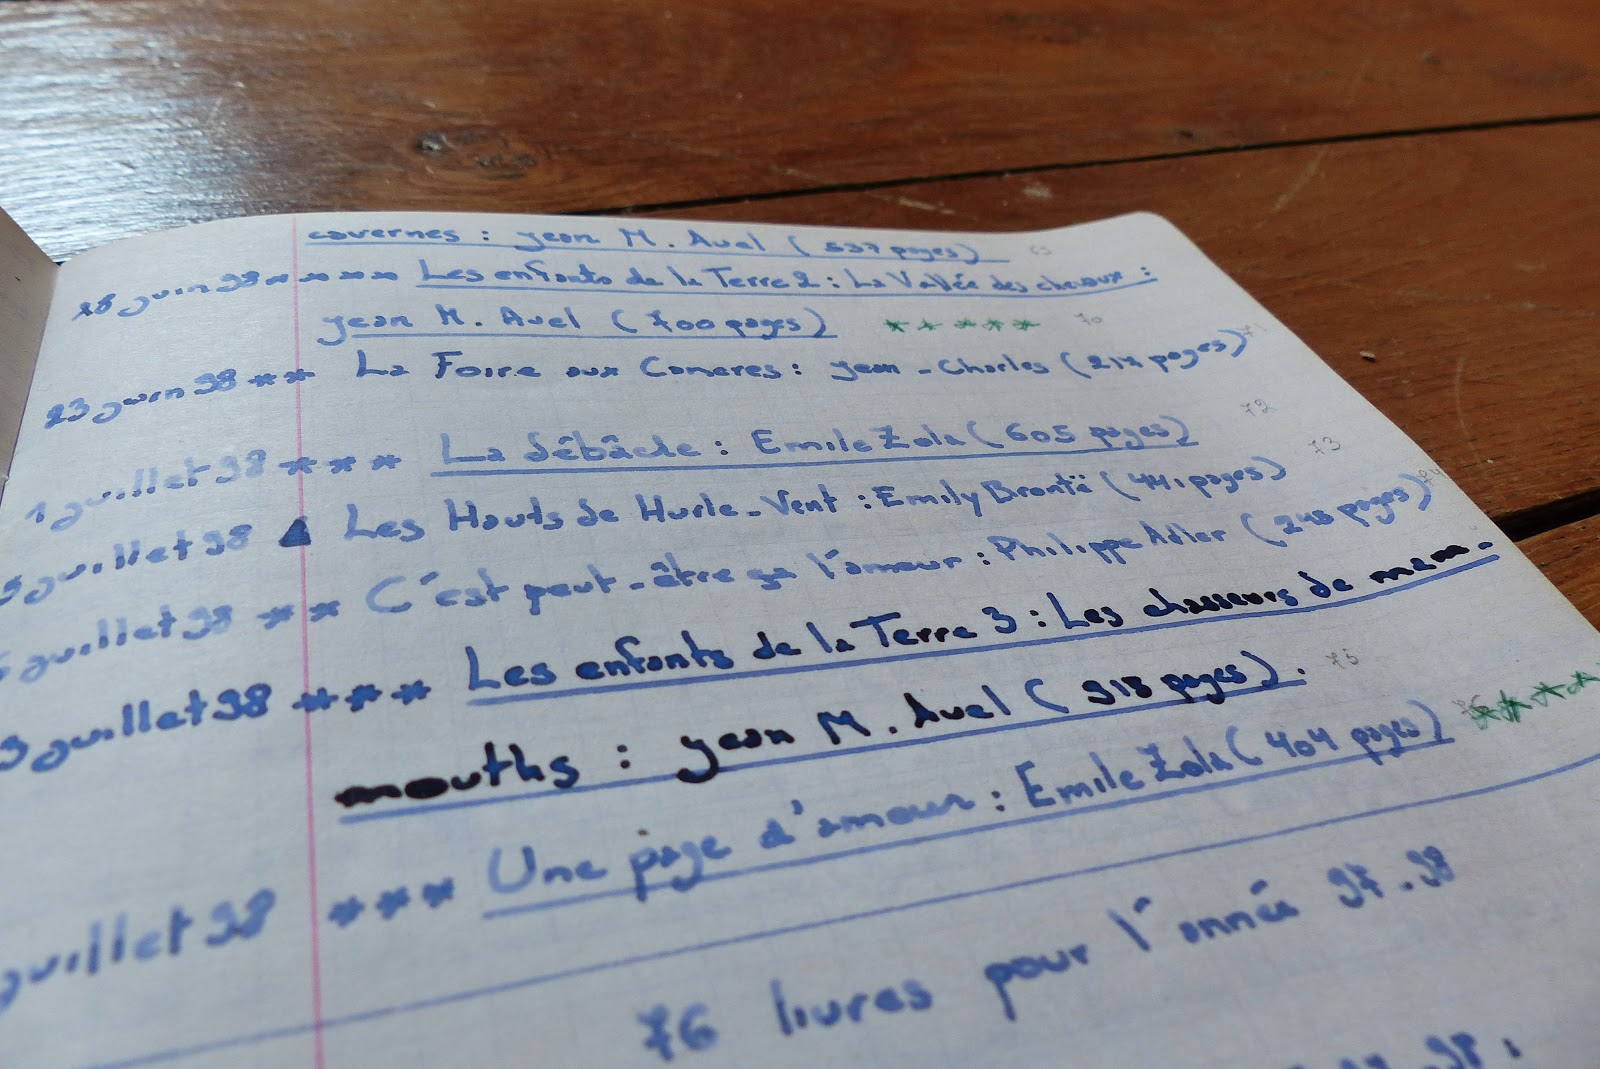 cavernes : jean M. Auel ( 537 pages) 69
18 juin 98 **** Les enfants de la Terre 2 : La Vallée des chevaux :
jean M. Auel ( 700 pages) ***** 70
23 juin 98 ** La Foire aux Comeres : jean - Charles ( 217 pages) 71
1 juillet 98 *** La débâcle : Emile Zola ( 605 pages) 72
5 juillet 98 ▲ Les Hauts de Hurle-Vent : Emily Brontë ( 441 pages) 73
juillet 98 ** C'est peut-être ça l'amour : Philippe Adler ( pages) 74
juillet 98 *** Les enfants de la Terre 3 : Les chasseurs de mam-
mouths : jean M. Auel ( 918 pages). 75
juillet 98 *** Une page d'amour : Emile Zola ( 404 pages) 76 ****
76 livres pour l'année 97.98